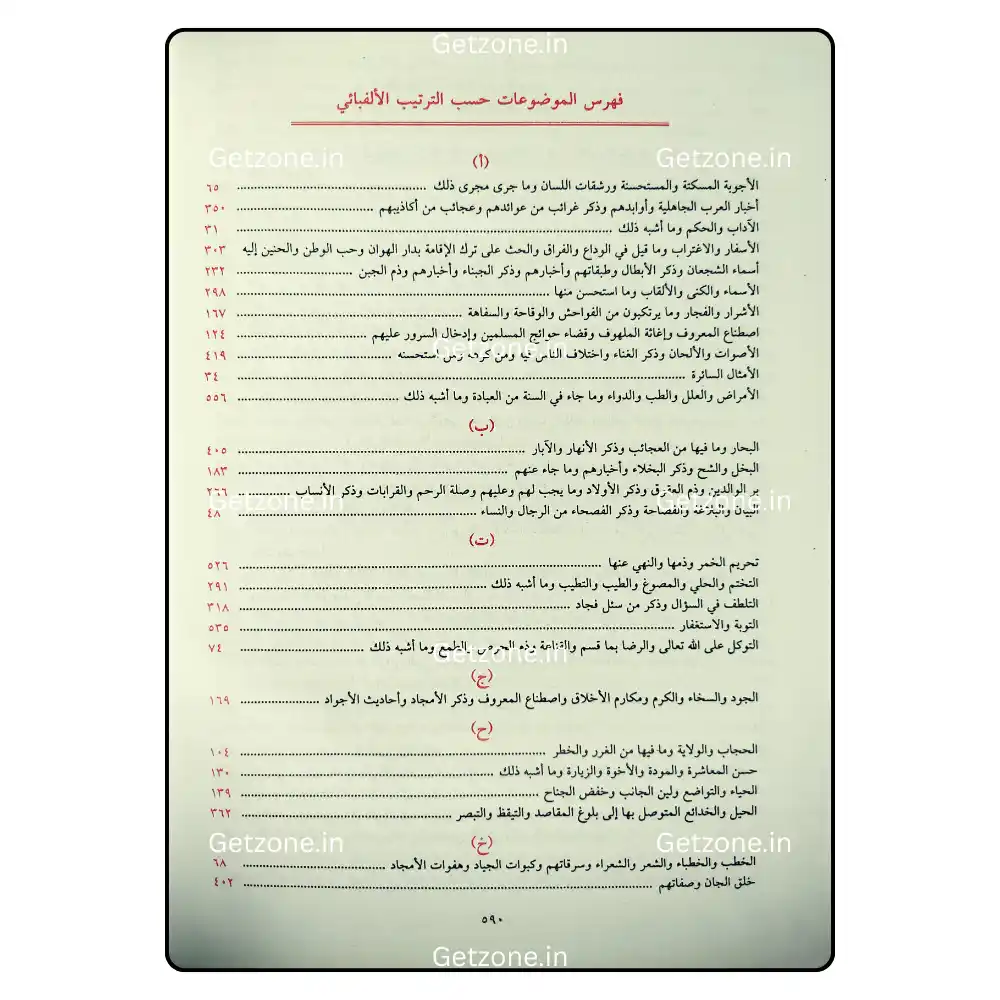 Getzone.in
فهرس الموضوعات حسب الترتيب الألفبائي
Getzone.in Getzone.in
(أ)
الأجوبة المسكتة والمستحسنة ورشقات اللسان وما جرى مجرى ذلك ٦٥
أخبار العرب الجاهلية وأوابدهم وذكر غرائب من عوائدهم وعجائب من أكاذيبهم ٣٥٠
الآداب والحكم وما أشبه ذلك ٣١
الأسفار والاغتراب وما قيل في الوداع والفراق والحث على ترك الإقامة بدار الهوان وحب الوطن والحنين إليه ٣٠٣
أسماء الشجعان وذكر الأبطال وطبقاتهم وأخبارهم وذكر الجبناء وأخبارهم وذم الجبن ٢٣٢
الأسماء والكنى والألقاب وما استحسن منها ٢٩٨
الأشرار والفجار وما يرتكبون من الفواحش والوقاحة والسفاهة ١٦٧
اصطناع المعروف وإغاثة الملهوف وقضاء حوائج المسلمين وإدخال السرور عليهم ١٢٤
Getzone.in
الأصوات والألحان وذكر الغناء واختلاف الناس فيه ومن كرهه ومن استحسنه ٤١٩
الأمثال السائرة ٣٤
الأمراض والعلل والطب والدواء وما جاء في السنة من العيادة وما أشبه ذلك ٥٥٦
(ب)
البحار وما فيها من العجائب وذكر الأنهار والآبار ٤٠٥
البخل والشح وذكر البخلاء وأخبارهم وما جاء عنهم ١٨٣
بر الوالدين وذم العقوق وذكر الأولاد وما يجب لهم وعليهم وصلة الرحم والقرابات وذكر الأنساب ٢٦٦
Getzone.in Getzone.in
البيان والبلاغة والفصاحة وذكر الفصحاء من الرجال والنساء ٤٨
(ت)
تحريم الخمر وذمها والنهي عنها ٥٢٦
التختم والحلي والمصوغ والطيب والتطيب وما أشبه ذلك ٢٩١
التلطف في السؤال وذكر من سئل فجاد ٣١٨
التوبة والاستغفار ٥٣٥
التوكل على الله تعالى والرضا بما قسم والقناعة وذم الحرص والطمع وما أشبه ذلك ٧٤
Getzone.in
(ج)
الجود والسخاء والكرم ومكارم الأخلاق واصطناع المعروف وذكر الأمجاد وأحاديث الأجواد ١٦٩
(ح)
الحجاب والولاية وما فيها من الغرر والخطر ١٠٤
حسن المعاشرة والمودة والأخوة والزيارة وما أشبه ذلك ١٣٠
الحياء والتواضع ولين الجانب وخفض الجناح ١٣٩
الحيل والخدائع المتوصل بها إلى بلوغ المقاصد والتيقظ والتبصر ٣٦٢
Getzone.in Getzone.in
(خ)
الخطب والخطباء والشعر والشعراء وسرقاتهم وكبوات الجياد وهفوات الأمجاد ٦٨
خلق الجان وصفاتهم ٤٠٢
٥٩٠
Getzone.in